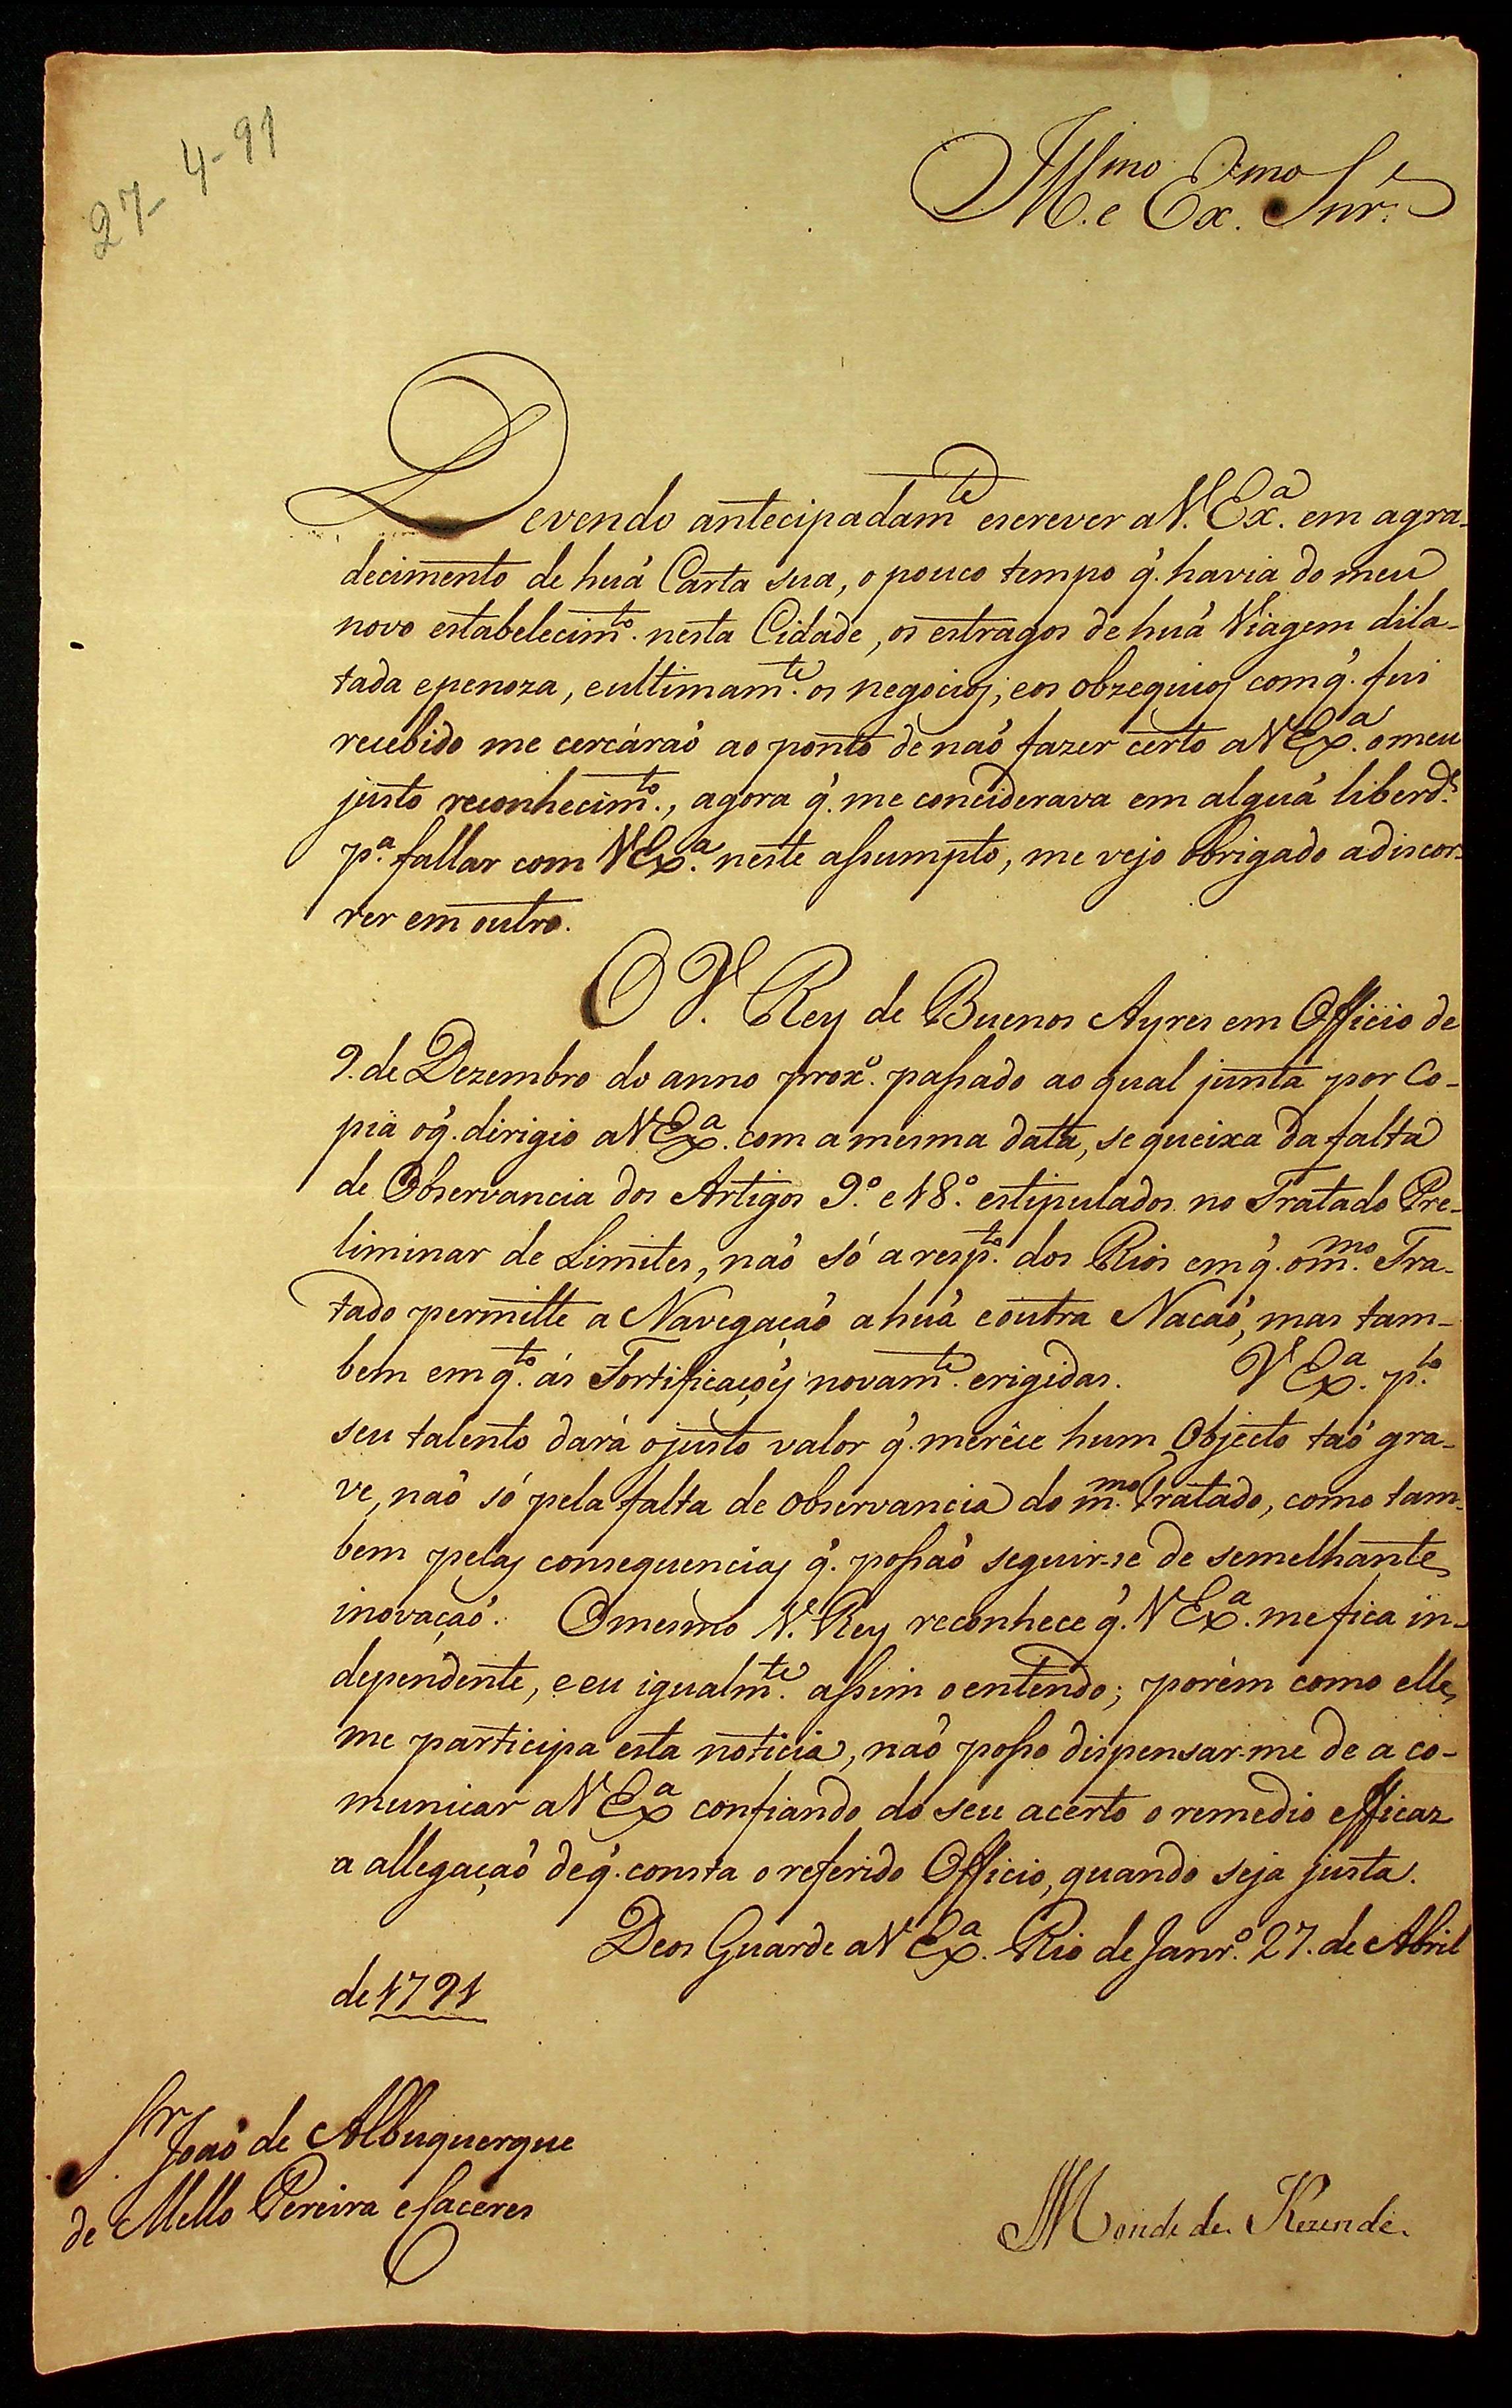 27-4-91
Illmo. e Exmo. Snr.
Devendo antecipadamte. escrever a V. Exa. em agra-
decimento de huá Carta sua, o pouco tempo q̃. havia do meu
novo estabelecimto. nesta Cidade, os estragos de huá Viagem dila-
tada e penoza, e ultimamte. os negocios; e os obzequios com q̃. fui
recebido me cercáraõ ao ponto de naõ fazer certo a V Exa. o meu
justo reconhecimto., agora q̃. me conciderava em alguá liberde.
pa. fallar com V Exa. neste assumpto, me vejo obrigado a discor-
rer em outro.
O V. Rey de Buenos Ayres em Officio de
9. de Dezembro do anno proxo. passado ao qual junta por Co-
pia o q̃. dirigio a V Exa. com a mesma data, se queixa da falta
de Observancia dos Artigos 9.º e 18.º estipulados no Tratado Pre-
liminar de Limites, naõ só a respto. dos Rios em q̃. o mmo. Tra-
tado permitte a Navegaçaõ a huá e outra Nacaõ, mas tam-
bem em qto. ás Fortificaçoẽs novamte. erigidas. V Exa. plo.
seu talento dará o justo valor q̃. merêce hum Objecto taõ gra-
ve, naõ só pela falta de observancia do mmo. Tratado, como tam-
bem pelas consequencias q̃. possaõ seguir-se de semelhante
inovaçaõ. O mesmo V. Rey reconhece q̃. V Exa. me fica in-
dependente, e eu igualmte. assim o entendo; porèm como elle
me participa esta noticia, naõ posso dispensar-me de a co-
municar a V Exa. confiando do seu acerto o remedio efficaz
a allegaçaõ de q̃. consta o referido Officio, quando seja justa.
Deos Guarde a V Exa. Rio de Janro. 27. de Abril
de 1791
Sr. Joaõ de Albuquerque
de Mello Pereira e Caceres
Conde de Rezende.